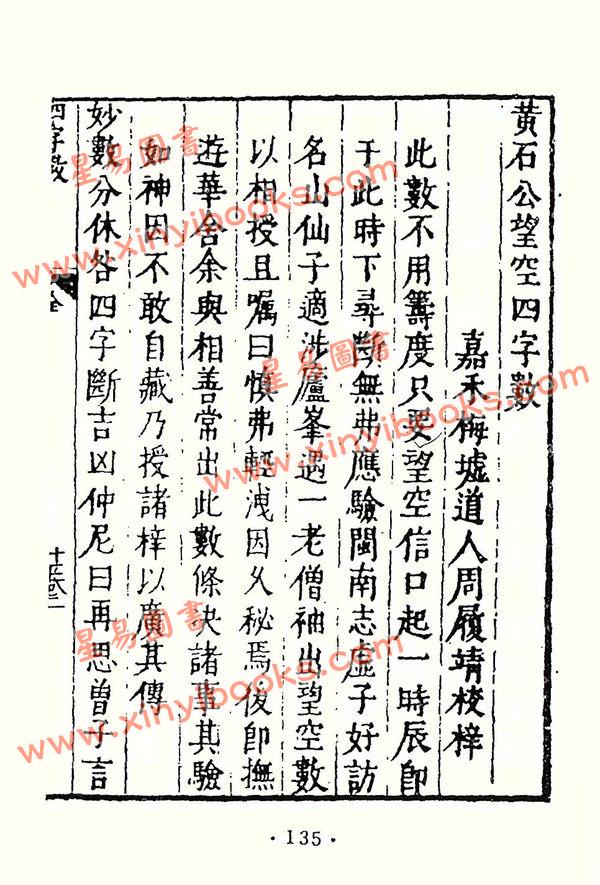 黃石公望空四字數
嘉禾梅墟道人周履靖校梓
此數不用籌度只要望空信口起一時辰即
于此時下尋斷無弗應驗閩南志虛子好訪
名山仙子適涉廬峯遇一老僧袖出望空數
以相授且囑曰慎弗輕洩因久秘焉後即撫
遊華舍余與相善常出此數條決諸事其驗
如神因不敢自藏乃授諸梓以廣其傳
妙數分休咎四字斷吉凶仲尼曰再思曾子言
四字數
全
·135·
星易圖書
www.xinyibooks.com
星易圖書
www.xinyibooks.com
星易圖書
www.xinyibooks.com